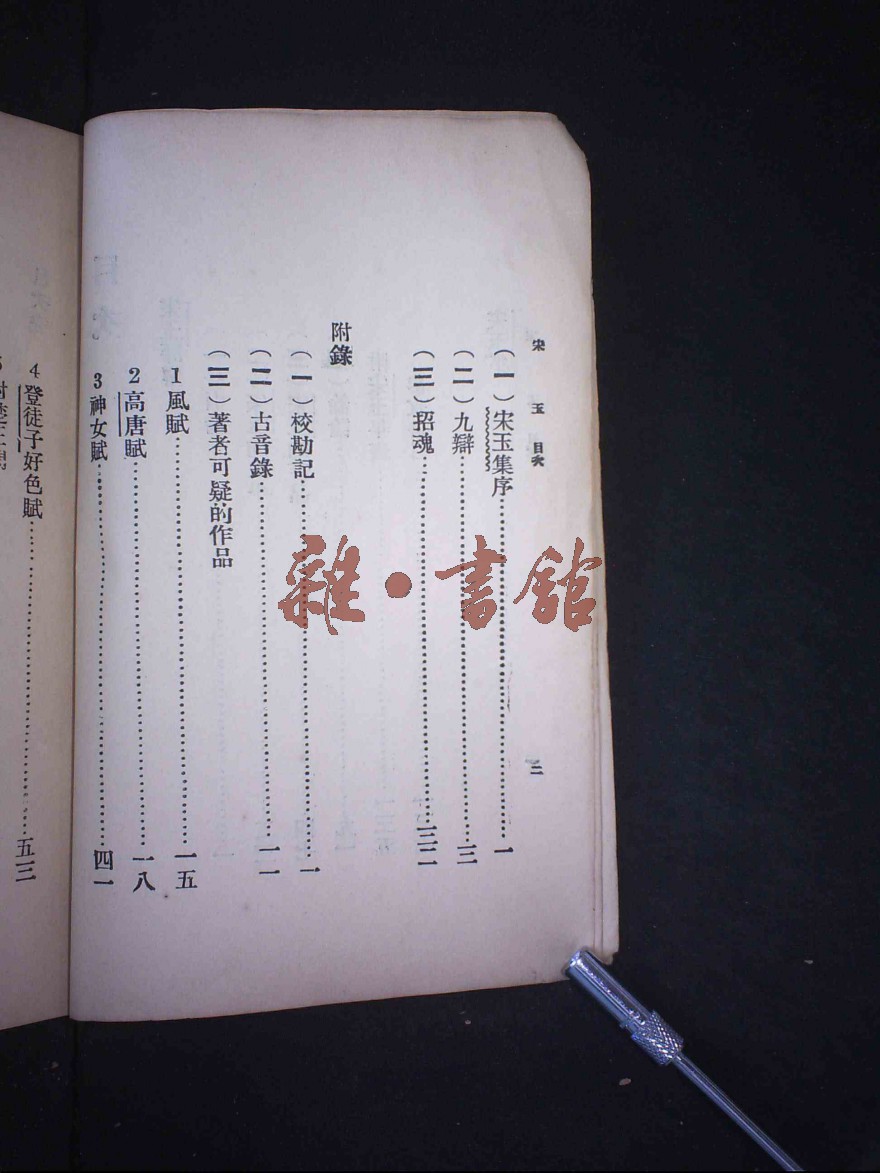 宋玉目次
二
（一）宋玉集序……一
（二）九辯……三
（三）招魂……三二
附錄
（一）校勘記……一
（二）古音錄……一一
（三）著者可疑的作品
1 風賦……一五
2 高唐賦……一八
3 神女賦……四一
4 登徒子好色賦……五三
雜·書館